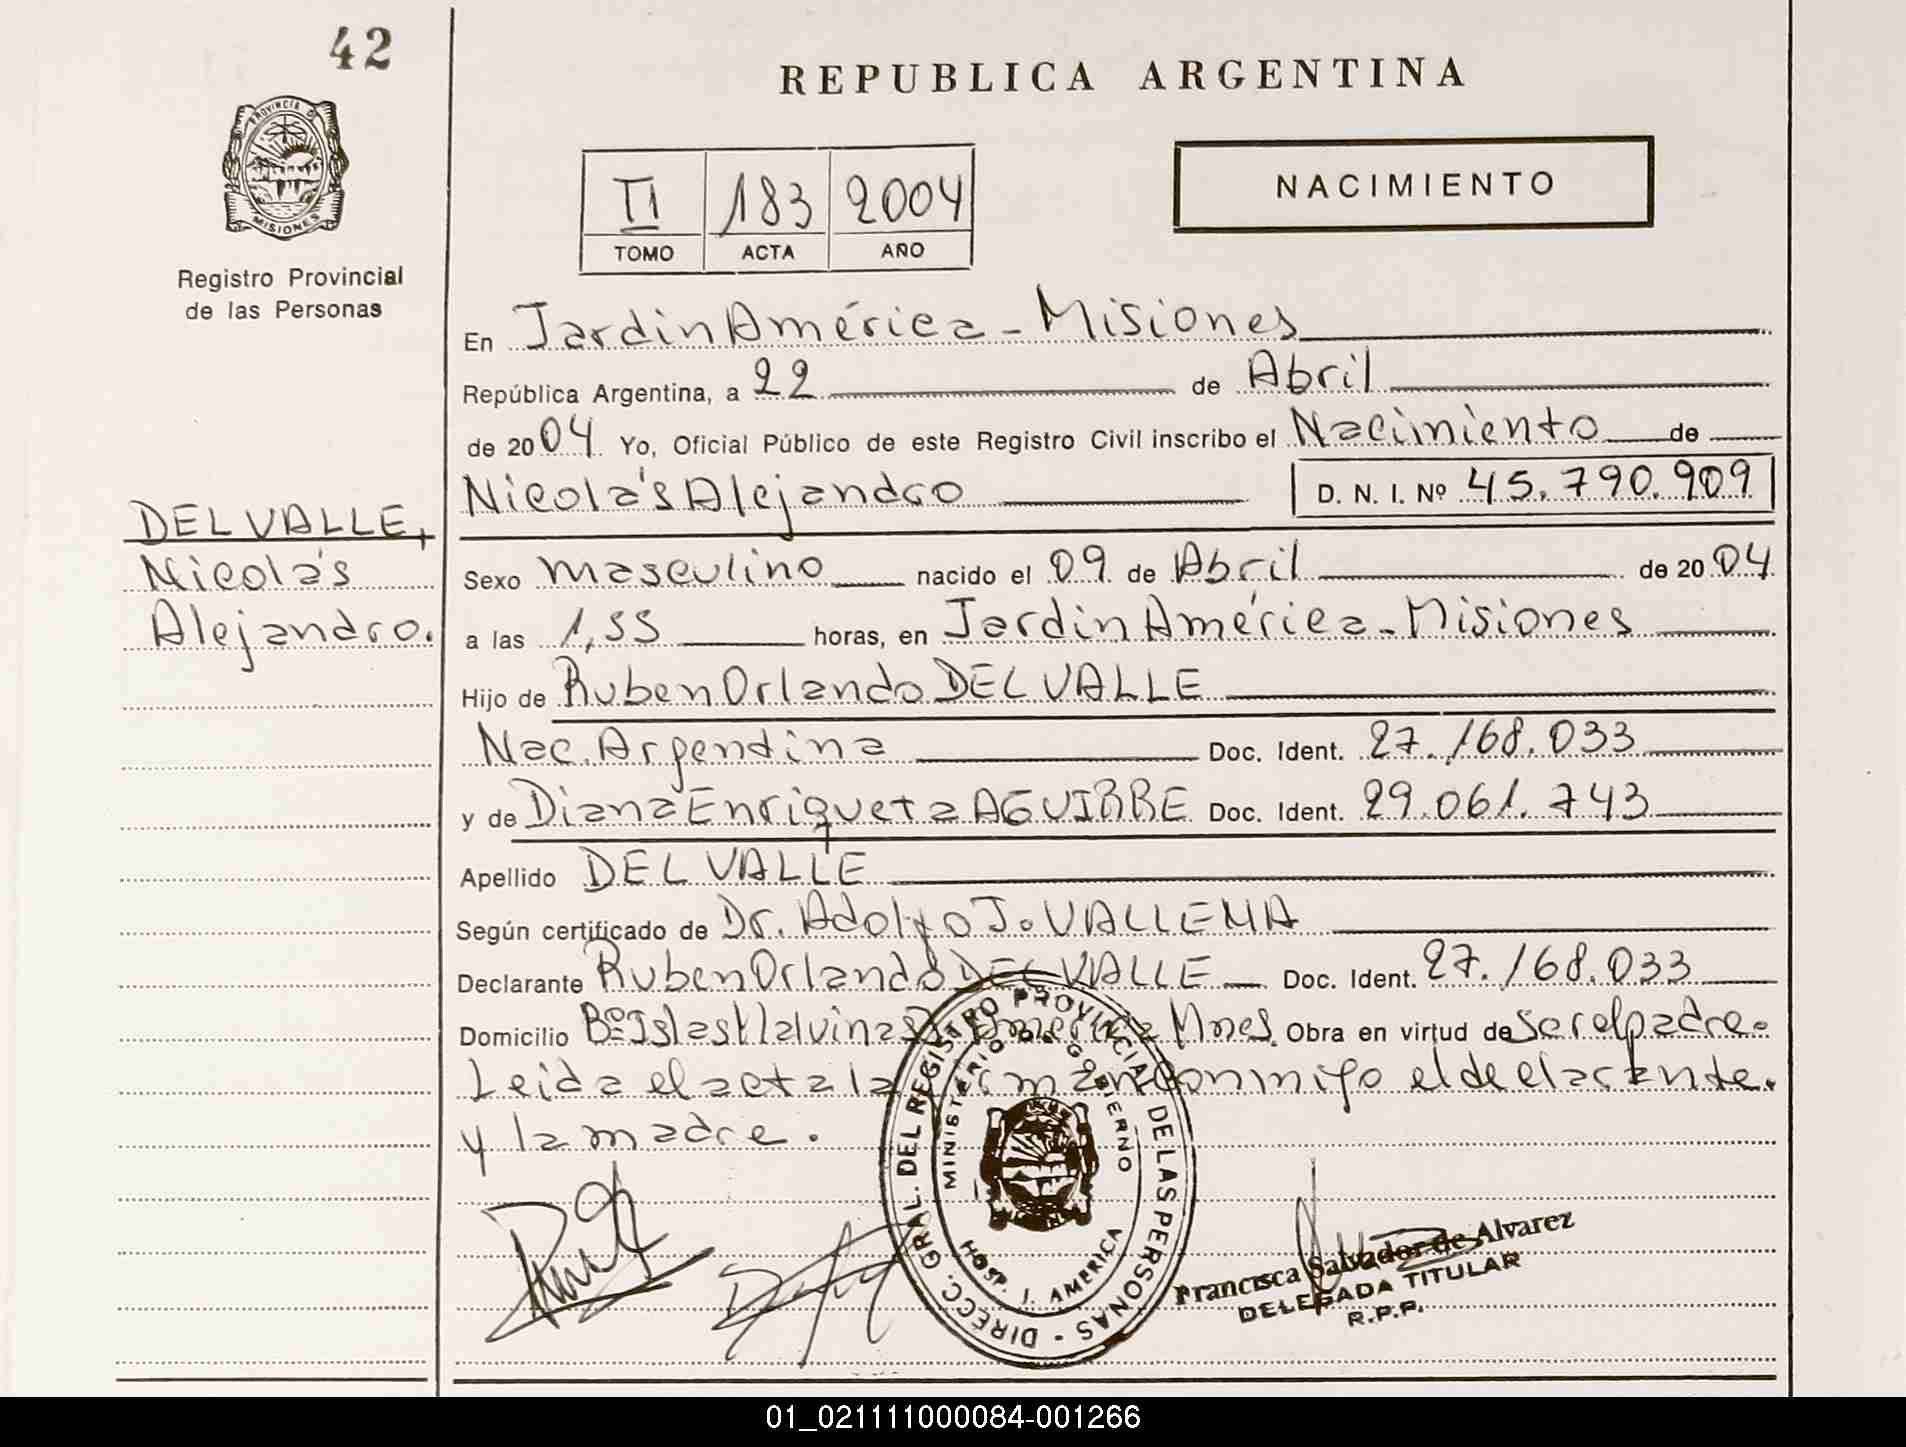 42
REPUBLICA ARGENTINA
PROVINCIA D
MISIONES
Registro Provincial
de las Personas
II 183 2004
TOMO ACTA AÑO
NACIMIENTO
En Jardin América - Misiones
República Argentina, a 22 de Abril
de 2004 Yo, Oficial Público de este Registro Civil inscribo el Nacimiento de
Nicolás Alejandro D. N. I. Nº 45.790.909
DEL VALLE,
Nicolás
Alejandro.
Sexo masculino nacido el 09 de Abril de 2004
a las 1,55 horas, en Jardin América - Misiones
Hijo de Ruben Orlando DEL VALLE
Nac. Argentina Doc. Ident. 27.168.033
y de Diana Enriqueta AGUIRRE Doc. Ident. 29.061.743
Apellido DEL VALLE
Según certificado de Dr. Adolfo J.
Declarante Ruben Orlando DEL VALLE Doc. Ident. 27.168.033
Domicilio Bº Islas Malvinas J. America Mnes. Obra en virtud de ser el padre.
Leida el acta la firman conmigo el declarante.
y la madre.
DIRECC. GRAL. DEL REGISTRO PROVINCIAL DE LAS PERSONAS -
MINISTERIO DE GOBIERNO
HOSP. J. AMERICA
Francisca Salvador de Alvarez
DELEGADA TITULAR
R.P.P.
01_021111000084-001266